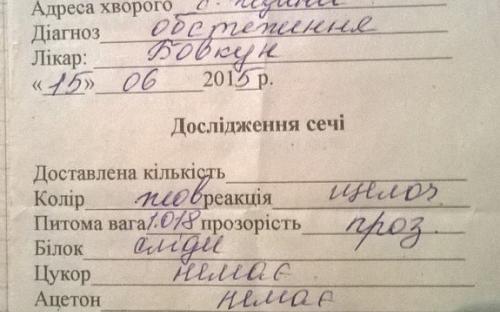 Адреса хворого с.
Діагноз обстеження
Лікар: Бовкун
«15» 06 2015 р.
Дослідження сечі
Доставлена кількість
Колір жов реакція щелоч
Питома вага 1.018 прозорість проз.
Білок сліди
Цукор немає
Ацетон немає